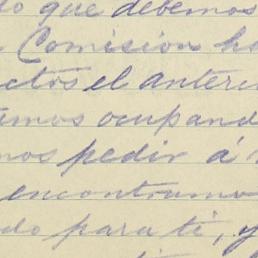 do que debemos
Comision ha
ctos el anteri
temos ocupand
mos pedir á
encontramo
do para ti, y